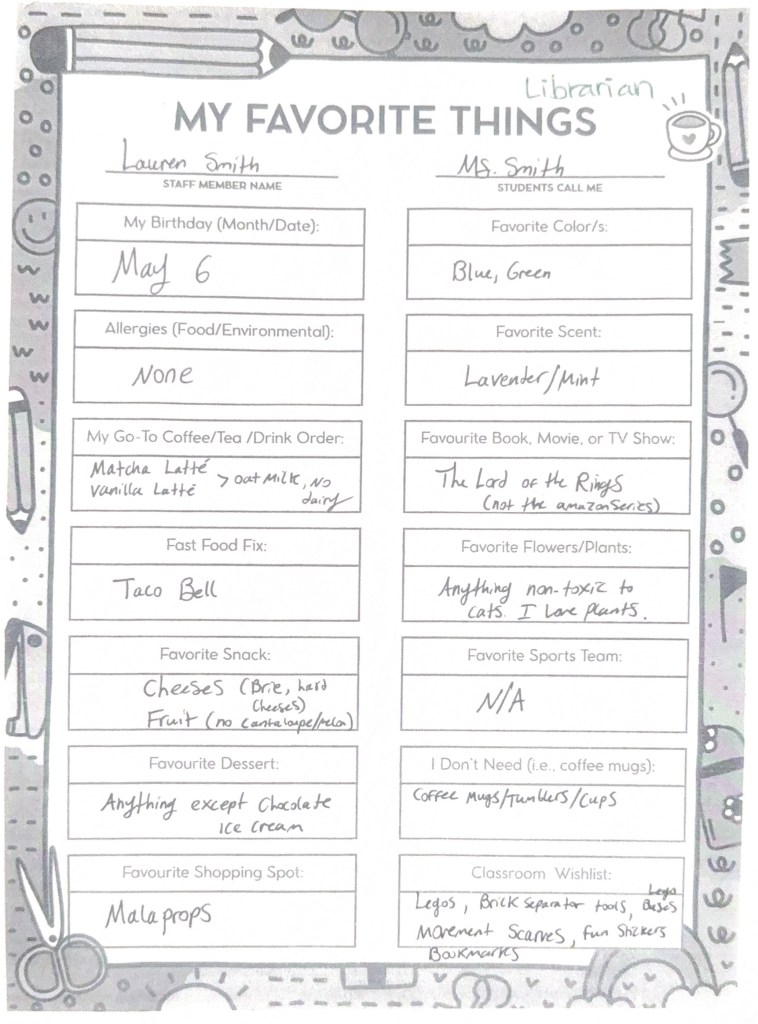 Librarian
MY FAVORITE THINGS
Lauren Smith
STAFF MEMBER NAME
Ms. Smith
STUDENTS CALL ME
My Birthday (Month/Date):
May 6
Favorite Color/s:
Blue, Green
Allergies (Food/Environmental):
None
Favorite Scent:
Lavender/Mint
My Go-To Coffee/Tea /Drink Order:
Matcha Latté
Vanilla Latté > oat milk, no
dairy
Favourite Book, Movie, or TV Show:
The Lord of the Rings
(not the amazon series)
Fast Food Fix:
Taco Bell
Favorite Flowers/Plants:
Anything non-toxic to
cats. I love plants.
Favorite Snack:
Cheeses (Brie, hard
cheeses)
Fruit (no cantaloupe/melon)
Favorite Sports Team:
N/A
Favourite Dessert:
Anything except Chocolate
ice cream
I Don't Need (i.e., coffee mugs):
Coffee Mugs/Tumblers/Cups
Favourite Shopping Spot:
Malaprops
Classroom Wishlist:
Legos, Brick separator tools, Lego Bases
Movement Scarves, fun stickers
Bookmarks